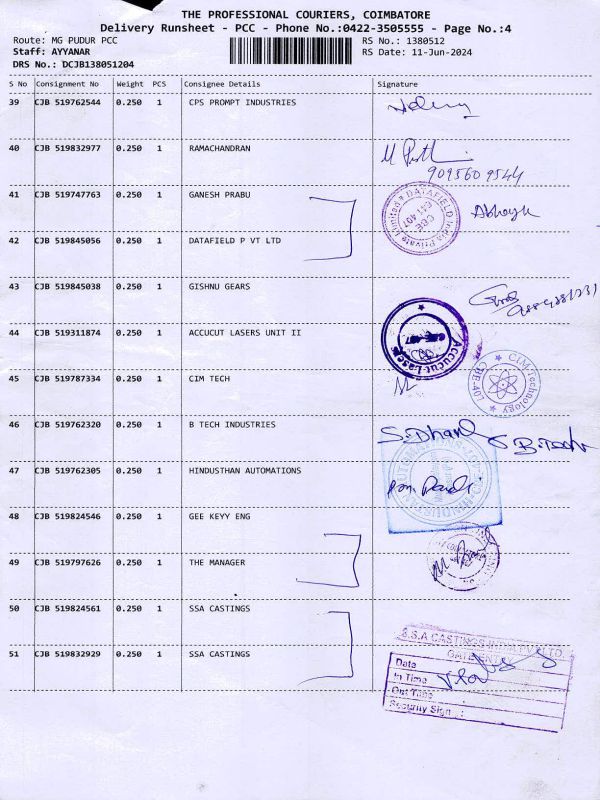 THE PROFESSIONAL COURIERS, COIMBATORE
Delivery Runsheet - PCC - Phone No.:0422-3505555 - Page No.:4
Route: MG PUDUR PCC RS No.: 1380512
Staff: AYYANAR RS Date: 11-Jun-2024
DRS No.: DCJB138051204
S No Consignment No Weight PCS Consignee Details Signature
39 CJB 519762544 0.250 1 CPS PROMPT INDUSTRIES
40 CJB 519832977 0.250 1 RAMACHANDRAN
9095609544
41 CJB 519747763 0.250 1 GANESH PRABU
DATAFIELD India Private Limited
CBE
641 407
42 CJB 519845056 0.250 1 DATAFIELD P VT LTD
43 CJB 519845038 0.250 1 GISHNU GEARS
44 CJB 519311874 0.250 1 ACCUCUT LASERS UNIT II
Accucut Lasers
45 CJB 519787334 0.250 1 CIM TECH
CIM-Technology
46 CJB 519762320 0.250 1 B TECH INDUSTRIES
S. Dhanl B.Tech
47 CJB 519762305 0.250 1 HINDUSTHAN AUTOMATIONS
48 CJB 519824546 0.250 1 GEE KEYY ENG
49 CJB 519797626 0.250 1 THE MANAGER
50 CJB 519824561 0.250 1 SSA CASTINGS
51 CJB 519832929 0.250 1 SSA CASTINGS
S.S.A CASTINGS INDIA PVT LTD.
Date
In Time
Out Time
Security Sign :